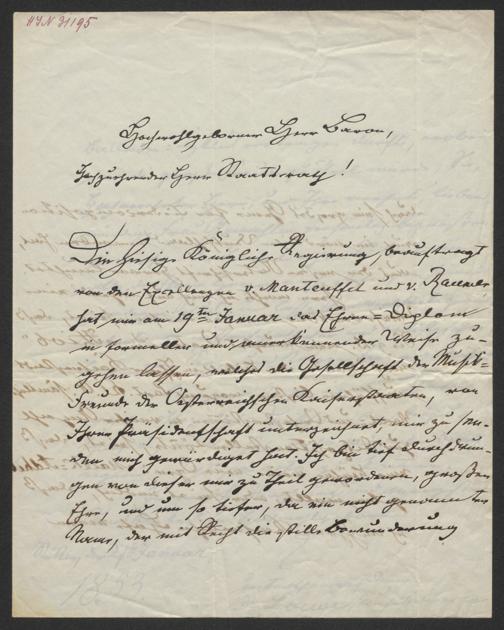 HIN 31195
Hochwohlgeborner Herr Baron,
Hochzuehrender Herr Staatsrath!
Die hiesige Königliche Regierung, beauftragt
von den Excellenzen v. Manteuffel und v. Raumer
hat mir am 19ten Januar das Ehren=Diplom
in formeller und anerkennender Weise zu-
gehen lassen, welches die Gesellschaft der Musik-
Freunde der Oesterreichschen Kaiserstaaten, von
Ihrer Präsidentschaft unterzeichnet, mir zu sen-
den mich gewürdiget hat. Ich bin tief durchdrun-
gen von dieser mir zu Theil gewordenen, großen
Ehre, und um so tiefer, da ein nicht genannter
Name, der mit Recht die stille Bewunderung